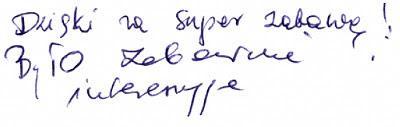 Dzięki za super zabawę!
Było zabawnie i
interesująco